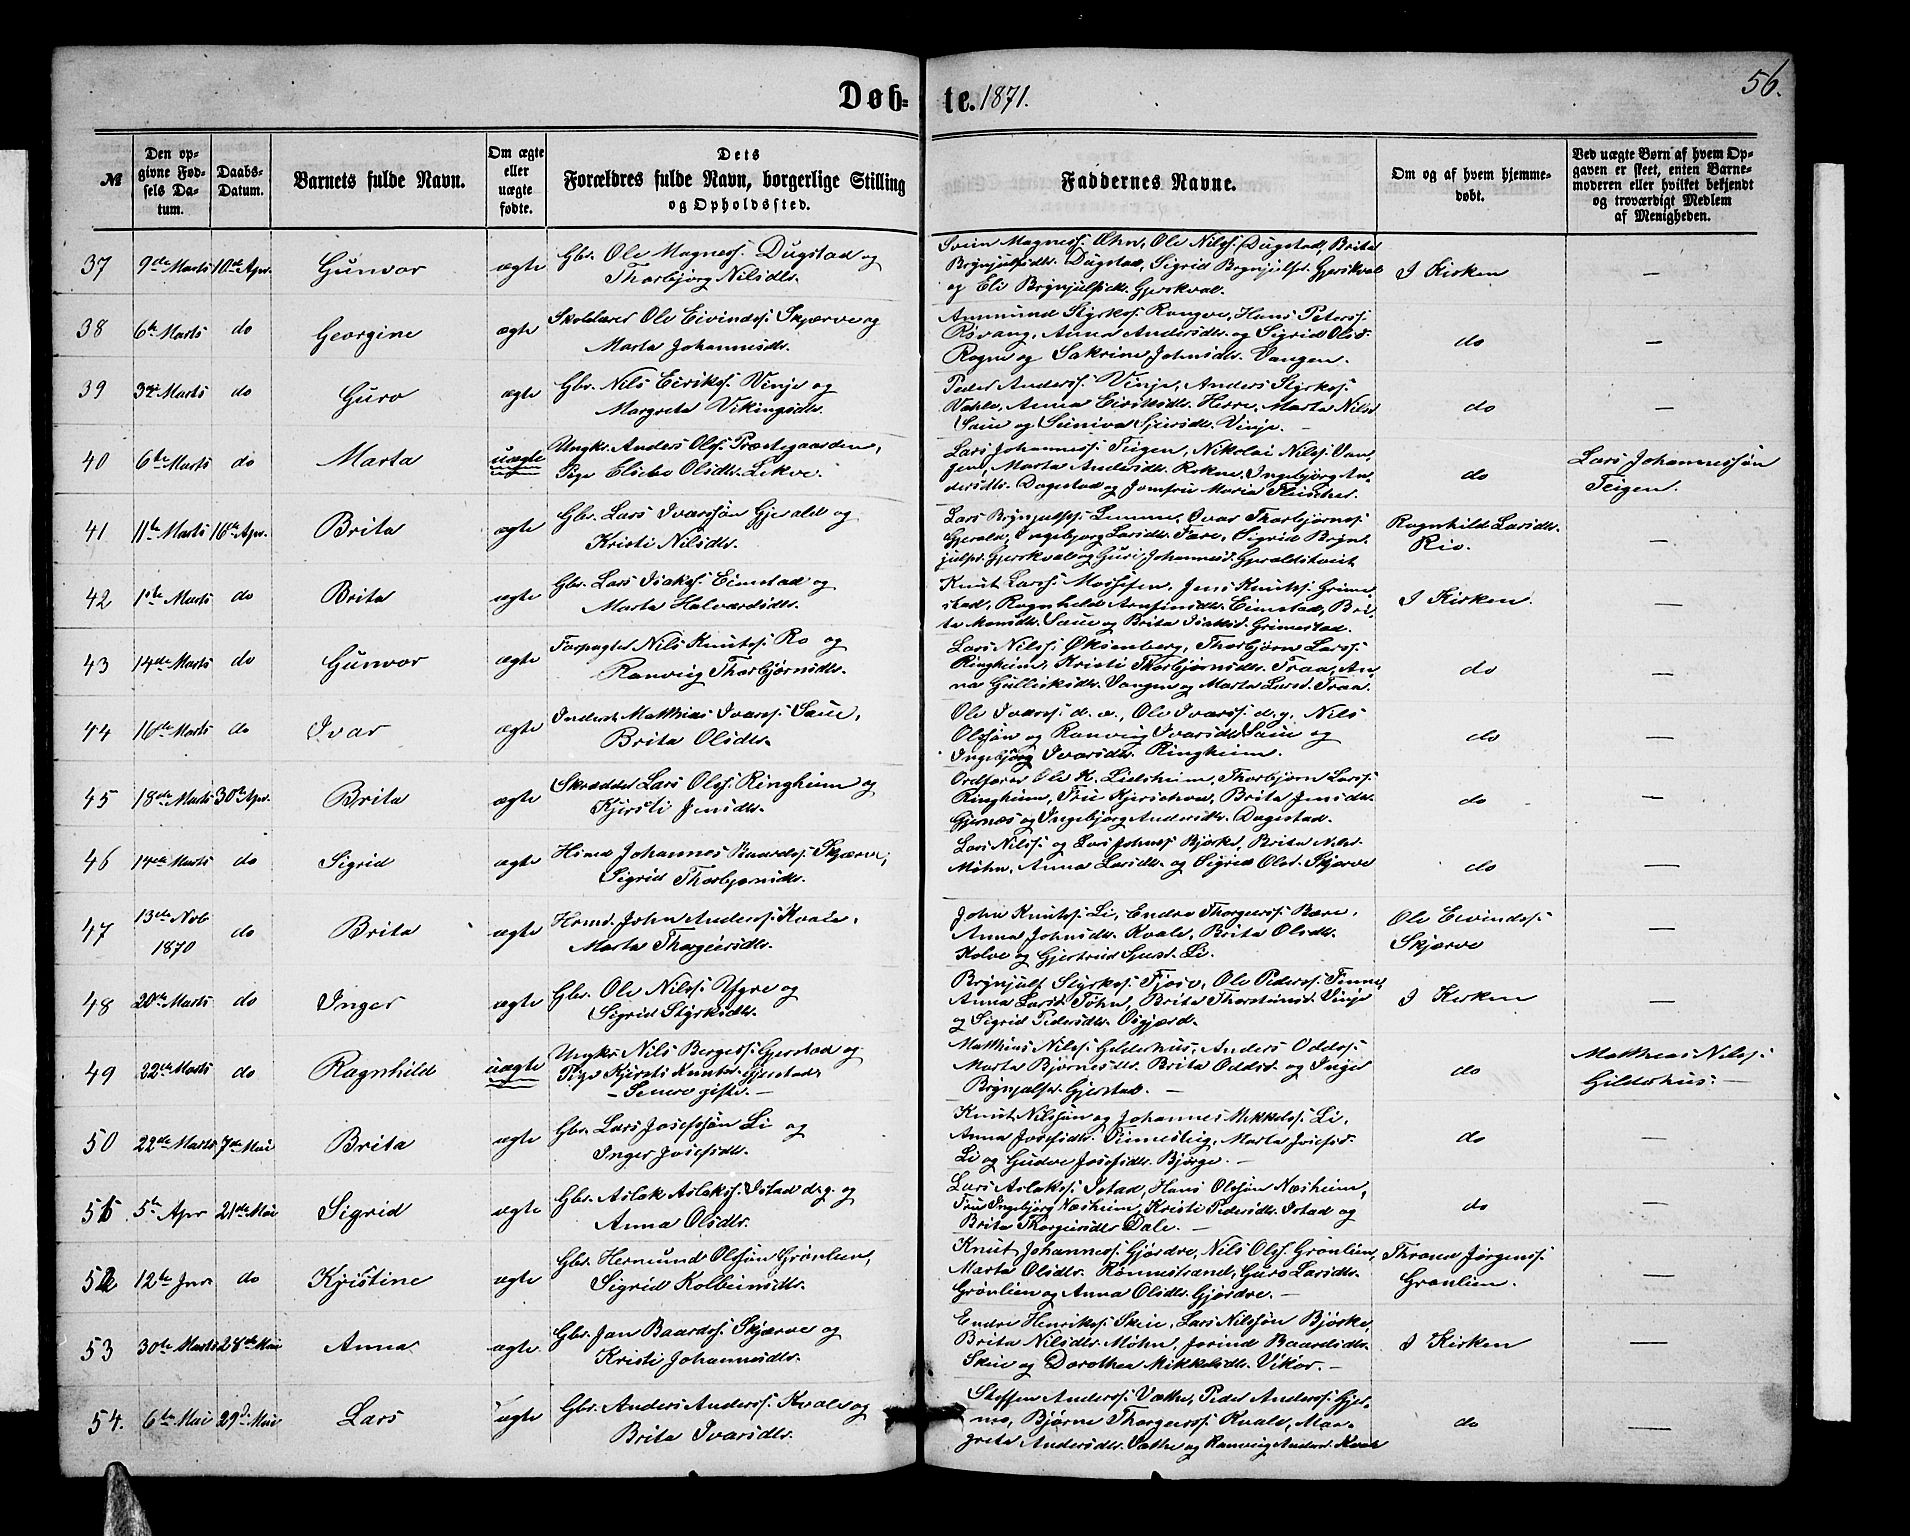 Døb-
te. 1871.
56.
№
Den op-
givne Fød-
sels Da-
tum.
Daabs-
Datum.
Barnets fulde Navn.
Om ægte
eller
uægte
fødte.
Dets
Forældres fulde Navn, borgerlige Stilling
og Opholdssted.
Faddernes Navne.
Om og af hvem hjemme-
døbt.
Ved uægte Børn af hvem Op-
gaven er skeet, enten Barne-
moderen eller hvilket bekjendt
og troværdigt Medlem
af Menigheden.
37 9de Marts 10de Apr. Gunvor ægte
Gbr. Ole Magness. Dugstad og
Thorbjørg Nilsdtr.
Svein Magness. Øhn, Ole Nilss. Dugstad, Brita
Brynjulfsdtr. Dugstad, Sigrid Brynjulfsd. Gjerskval
og Eli Brynjulfsdtr. Gjerskval.
I Kirken —
38 6te Marts do Georgine ægte
Skolelærer Ole Eivindss. Skjærve og
Marta Johannesdtr.
Ammund Styrkss. Rongve, Hans Peterss.
Røvang, Anna Andersdtr. og Sigrid Olsd.
Rogne og Sakrine Johnsdtr. Vangen.
do —
39 3die Marts do Guro ægte
Gbr. Nils Eirikss. Vinje og
Margreta Vikingsdtr.
Peder Anderss. Vinje, Anders Styrkss.
Væhle, Anna Eiriksdtr. Herre, Marta Nilsd.
Saue og Seniva Sjursdtr. Vinje. —
do —
40 6te Marts do Marta uægte
Ungkr. Anders Olss. Præstegaarden,
Pige Elsebe Olsdtr. Lekve.
Lars Johanness. Teigen, Nikolai Nilss. Van-
gen, Marta Andersdtr. Rokne, Ingebjørg An-
dersdtr. Dagestad og Jomfru Maria Fleischer.
do
Lars Johannessøn
Teigen.
41 11te Marts 16de Apr. Brita ægte
Gbr. Lars Ivarssøn Gjerald og
Kristi Nilsdtr.
Lars Brynjulfss. Lemme, Ivar Thorbjørnss.
Gjerald, Ingebjørg Larsdtr. Fære, Sigrid Bryn-
julfsd. Gjerskvale og Guri Johannesd. Gjeraldstveit
Ragnhild Larsdtr.
Rio.
—
42 1ste Marts do Brita ægte
Gbr. Lars Isakss. Eimstad og
Marta Halvardsdtr.
Knut Larss. Mossefen, Jens Knutss. Grime-
stad, Ragnhild Arnfinsdtr. Eimstad, Bri-
ta Monsdtr. Saue og Brita Isaksd. Grimestad.
I Kirken. —
43 14de Marts do Gunvor ægte
Forpagter Nils Knutss. Ro og
Ranveig Thorbjørnsdtr.
Lars Nilss. Øksenberg, Thorbjørn Larss.
Ringheim, Kristi Thorbjørnsdtr. Traa, An-
na Gulleiksdtr. Vangen og Marta Larsd. Traa.
do —
44 16de Marts do Ivar ægte
Inderst Matthias Ivarss. Saue,
Brita Olsdtr.
Ole Ivarss. d. æ., Ole Ivarss. d. y. Nils
Olssøn og Ranveig Ivarsdtr. Saue og
Ingebjørg Ivarsdtr. Ringheim.
do —
45 18de Marts 30te Apr. Brita ægte
Skrædder Lars Olss. Ringheim og
Kjersti Jensdtr.
Ordfører Ole K. Lidsheim, Thorbjørn Larss.
Ringheim, Fru Kjerschow, Brita Jensdtr.
Gjernæs og Ingebjørg Andersdtr. Dagestad.
do —
46 14de Marts do Sigrid ægte
Hsmd. Johannes Baardss. Skjærve,
Sigrid Thorbjørnsdtr.
Lars Nilss. og Lars Johnss. Bjørke, Brita Nilsd.
Møhn, Anna Larsdtr. og Sigrid Olsd. Skjerve
do —
47 13de Nob 1870 do Brita ægte
Hsmd. John Anderss. Kvale,
Marta Thorgeirsdtr.
John Knutss. Li, Endre Thorgerss. Bære,
Anna Johnsdtr. Kvale, Brita Olsdtr.
Kolve og Gjertrud Sjursd. Li.
Ole Eivindss.
Skjærve
—
48 20de Marts do Inger ægte
Gbr. Ole Nilss. Ygre og
Sigrid Styrksdtr.
Brynjulf Styrkss. Fjose, Ole Pederss. Finne,
Anna Larsd. Tøhn, Brita Thorsteinsd. Vinje
og Sigrid Pedersdtr. Ospjærd.
I Kirken —
49 22de Marts do Ragnhild uægte
Ungkr. Nils Bergess. Gjerstad og
Pige Kjersti Knutsd. Gjerstad.
– Senere gifte. —
Matthias Nilss. Gilderhus, Anders Oddss.
Marta Bjørnesdtr. Brita Oddsd. og Inger
Brynjulfsd. Gjerstad. —
do
Matthias Nilss.
Gilderhus. —
50 22de Marts 7de Mai Brita ægte
Gbr. Lars Josefssøn Li og
Inger Josefsdtr.
Knut Nilssøn og Johannes Mikkelss. Li,
Anna Josefsdtr. Rinnesteig, Marta Josefsd.
Li og Gudve Josefsdtr. Bjørge. —
do —
51 5te Apr 21de Mai Sigrid ægte
Gbr. Aslak Aslakss. Istad d. y. og
Anna Olsdtr.
Lars Aslakss. Istad, Hans Olssøn Næsheim,
Fru Ingebjørg Næsheim, Kristi Pedersdtr. Istad og
Brita Thorgeirsdtr. Dale. —
do —
52 12te Jnr do Kristine ægte
Gbr. Hermund Olssøn Grønlien,
Sigrid Kolbeinsdtr.
Knut Johanness. Gjørdre, Nils Olss. Grønlien,
Marta Olsdtr. Rønnestrand, Guro Larsdtr.
Grønlien og Anna Olsdtr. Gjørdre. —
Thrond Jørgenss.
Grønlien.
—
53 30te Marts 28de Mai Anna ægte
Gbr. Jan Baardss. Skjærve og
Kristi Johannesdtr.
Endre Henrikss. Skeie, Lars Nilssøn Bjørke,
Brita Nilsdtr. Møhn, Jorind Baardsdtr.
Skeie og Dorothea Mikkelsdtr. Vikør. —
I Kirken —
54. 6te Mai 29de Mai Lars ægte
Gbr. Anders Anderss. Kvale og
Brita Ivarsdtr.
Steffen Anderss. Væthe, Peder Anderss. Gjel-
mo, Bjørne Thorgeirss. Kvale, Mar-
greta Andersdtr. Væthe og Ranveig Andersd. Kvale
do —